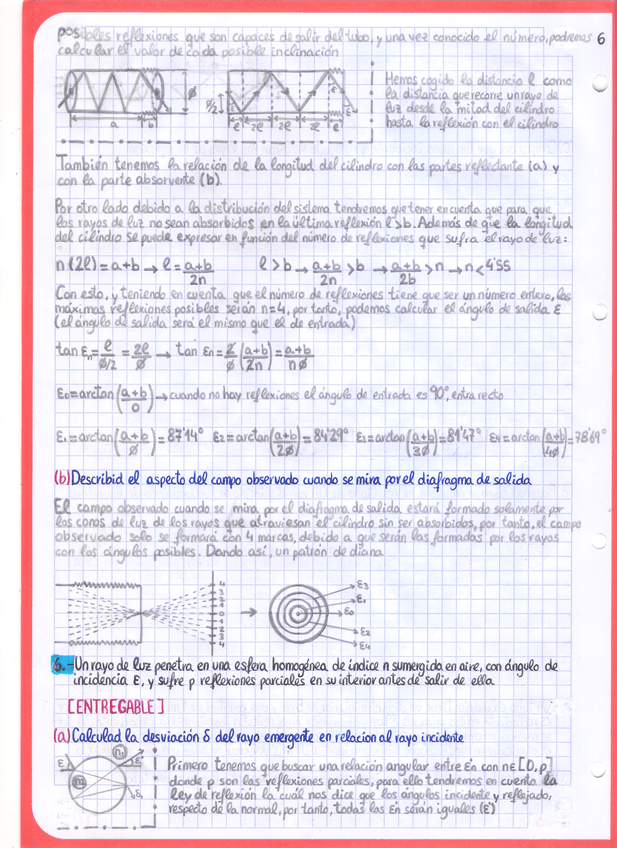 posibles reflexiones que son capaces de salir del tubo, y una vez conocido el número, podremos 6
calcular el valor de cada posible inclinación
Hemos cogido la distancia ℓ como
la distancia que recorre un rayo de
luz desde la mitad del cilindro
hasta la reflexión con el cilindro
a b ∅
∅/2 ε ℓ 2ℓ 2ℓ 2ℓ ℓ ε
También tenemos la relación de la longitud del cilindro con las partes reflectante (a) y
con la parte absorvente (b).
Por otro lado debido a la distribución del sistema tendremos que tener en cuenta que para que
los rayos de luz no sean absorbidos en la última reflexión ℓ>b. Además de que la longitud
del cilindro se puede expresar en función del número de reflexiones que sufra el rayo de luz:
n(2ℓ)=a+b → ℓ=(a+b)/2n ℓ>b → (a+b)/2n >b → (a+b)/2b >n → n<4'55
Con esto, y teniendo en cuenta que el número de reflexiones tiene que ser un número entero, las
máximas reflexiones posibles serán n=4, por tanto, podemos calcular el ángulo de salida ε
(el ángulo de salida será el mismo que el de entrada)
tan εn=ℓ/(∅/2) = 2ℓ/∅ → tan εn=2/∅ ((a+b)/2n)=(a+b)/n∅
ε0=arctan((a+b)/0) → cuando no hay reflexiones el ángulo de entrada es 90°, entra recto
ε1=arctan((a+b)/∅)=87'14° ε2=arctan((a+b)/2∅)=84'29° ε3=arctan((a+b)/3∅)=81'47° ε4=arctan((a+b)/4∅)=78'69°
(b) Describid el aspecto del campo observado cuando se mira por el diafragma de salida
El campo observado cuando se mira por el diafragma de salida estará formado solamente por
los conos de luz de los rayos que atraviesan el cilindro sin ser absorbidos, por tanto, el campo
observado solo se formará con 4 marcas, debido a que serán las formadas por los rayos
con los ángulos posibles. Dando así, un patrón de diana
4
3
2
1
0
1
2
3
4
→
ε3
ε1
ε0
ε2
ε4
6.- Un rayo de luz penetra en una esfera homogénea de índice n sumergida en aire, con ángulo de
incidencia ε, y sufre p reflexiones parciales en su interior antes de salir de ella
[ENTREGABLE]
(a) Calculad la desviación δ del rayo emergente en relación al rayo incidente
Primero tenemos que buscar una relación angular entre ε'n con n∈[0,p]
donde p son las reflexiones parciales, para ello tendremos en cuenta la
ley de reflexión la cuál nos dice que los ángulos incidente y reflejado,
respecto de la normal, por tanto, todas las ε'n serán iguales (ε')